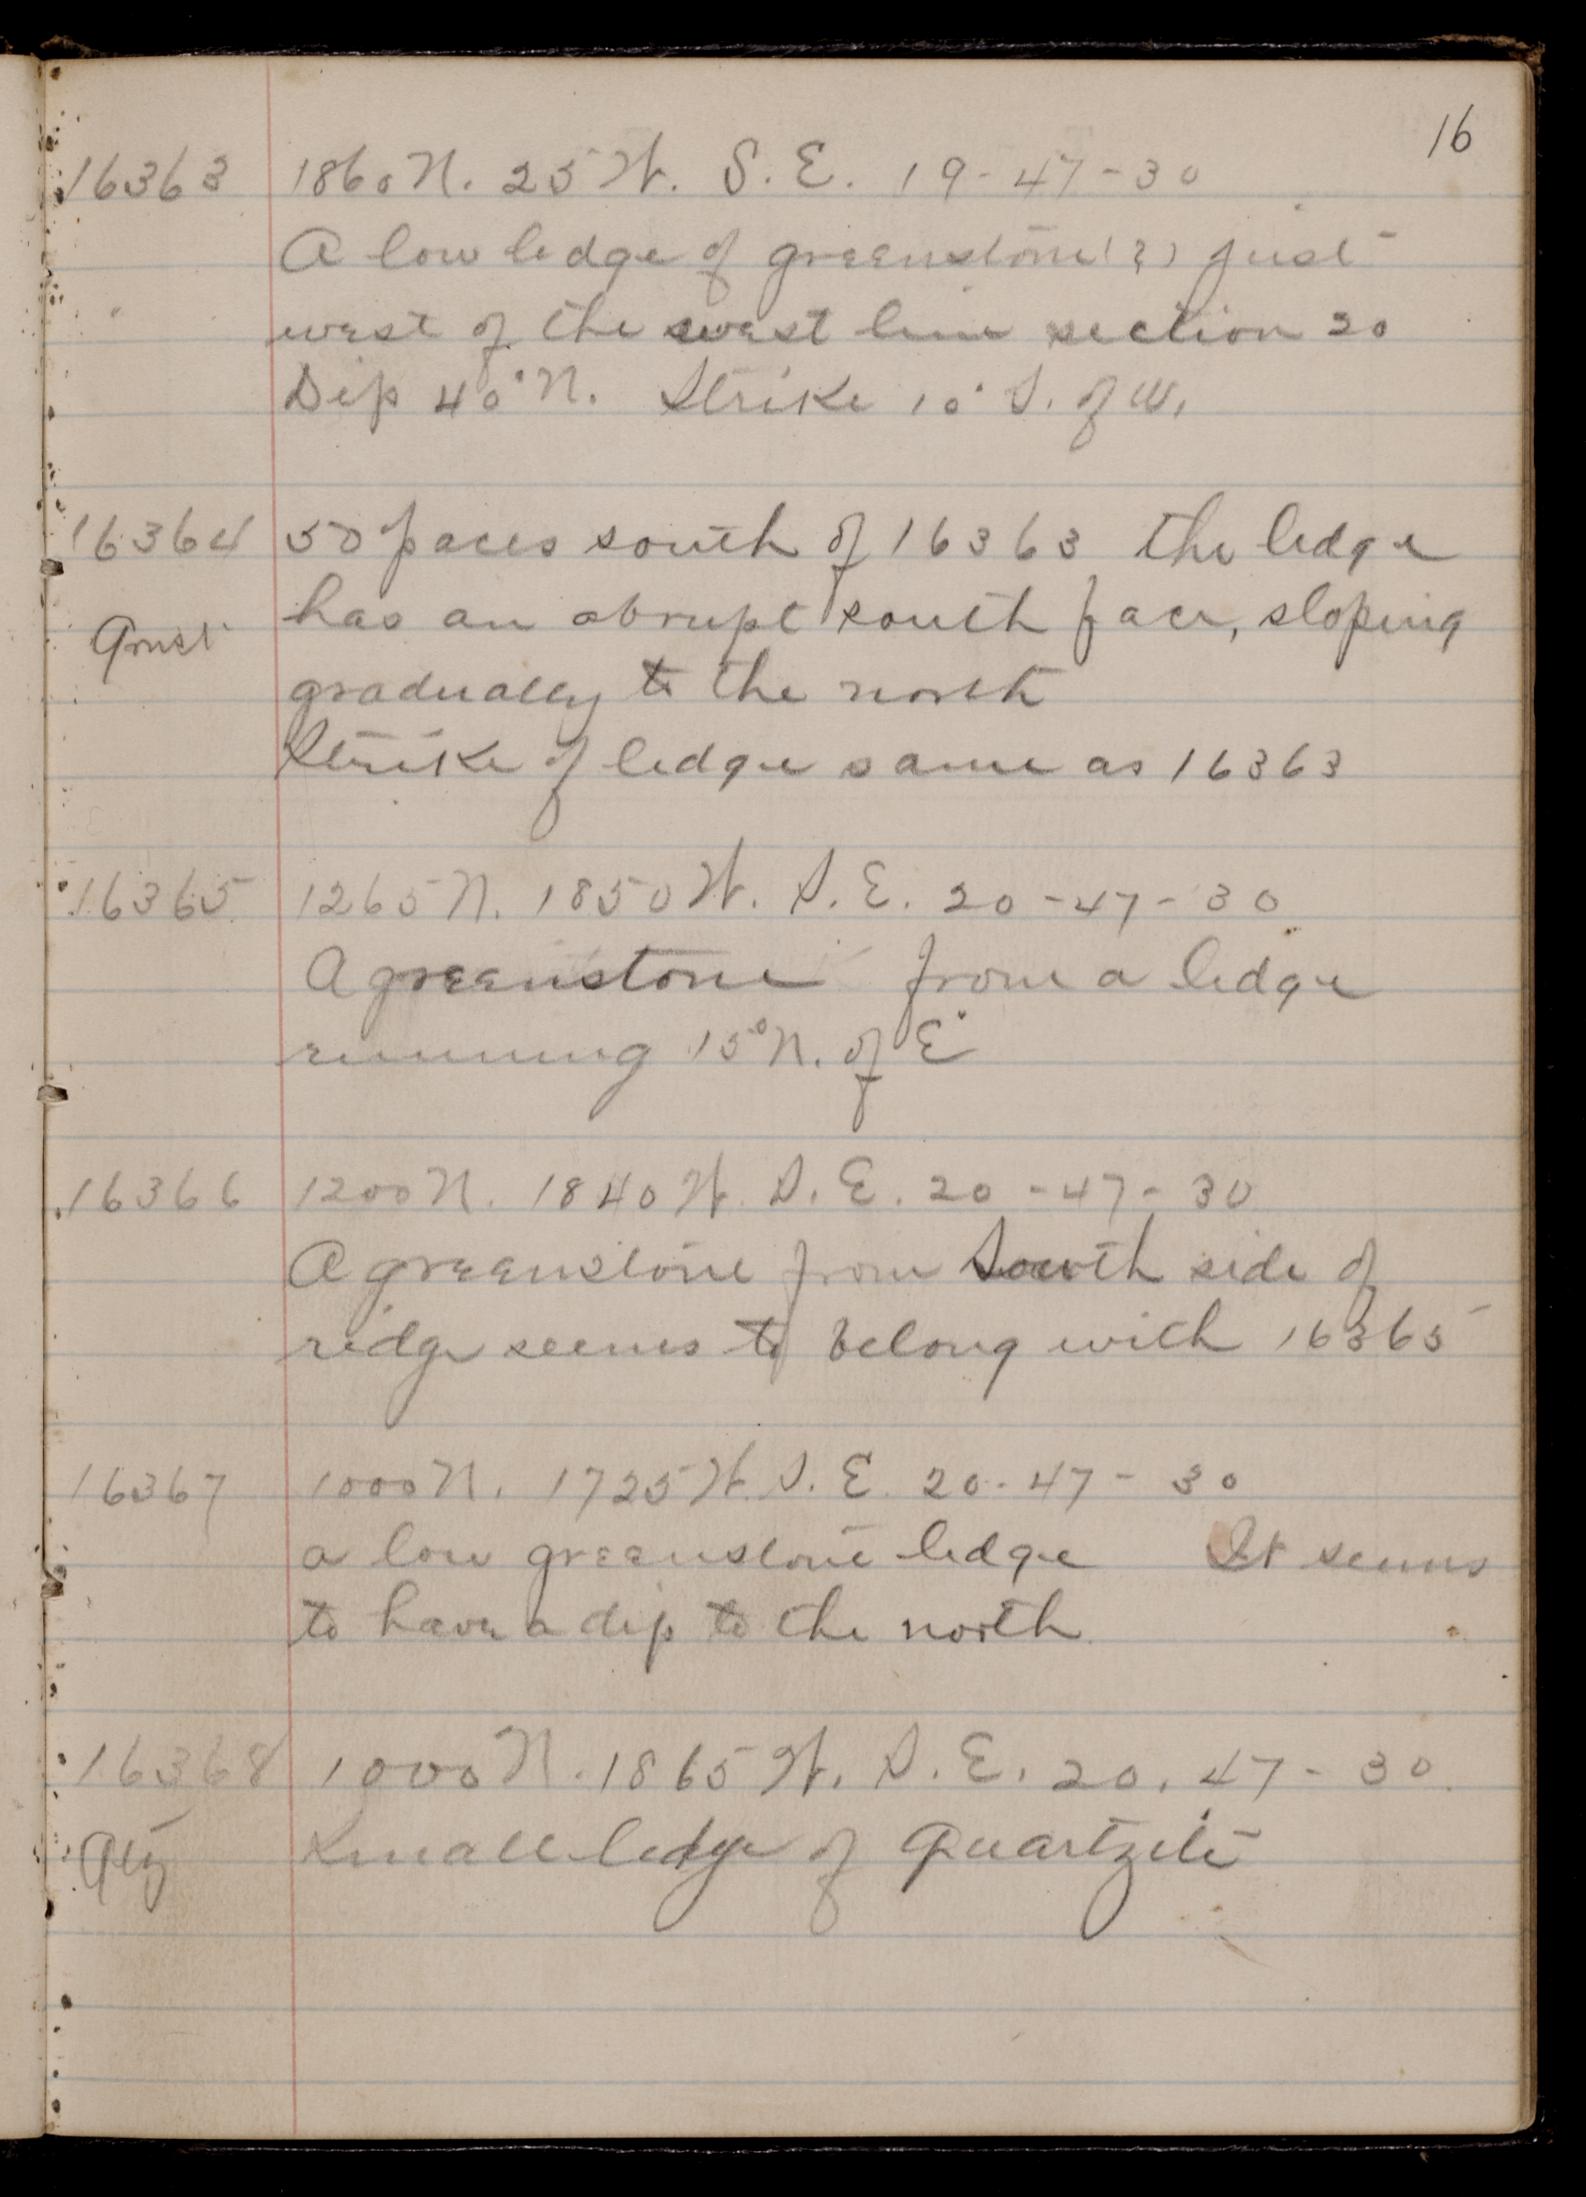 16
16363 1860 N. 25 W. S. E. 19-47-30
A low ledge of greenstone (?) just
west of the west line section 20
Dip 40° N. Strike 10° S. of W.
16364 50 paces south of 16363 the ledge
has an abrupt south face, sloping
Gnst
gradually to the north
Strike of ledge same as 16363
16365 1265 N. 1850 W. S. E. 20-47-30
A greenstone from a ledge
running 15° N. of E°
16366 1200 N. 1840 W. S. E. 20-47-30
A greenstone from South side of
ridge seems to belong with 16365
16367 1000 N. 1725 W. S. E. 20-47-30
a low greenstone ledge It seems
to have a dip to the north
16368 1000 N. 1865 W. S. E. 20. 47-30.
Qtz Small ledge of Quartzite